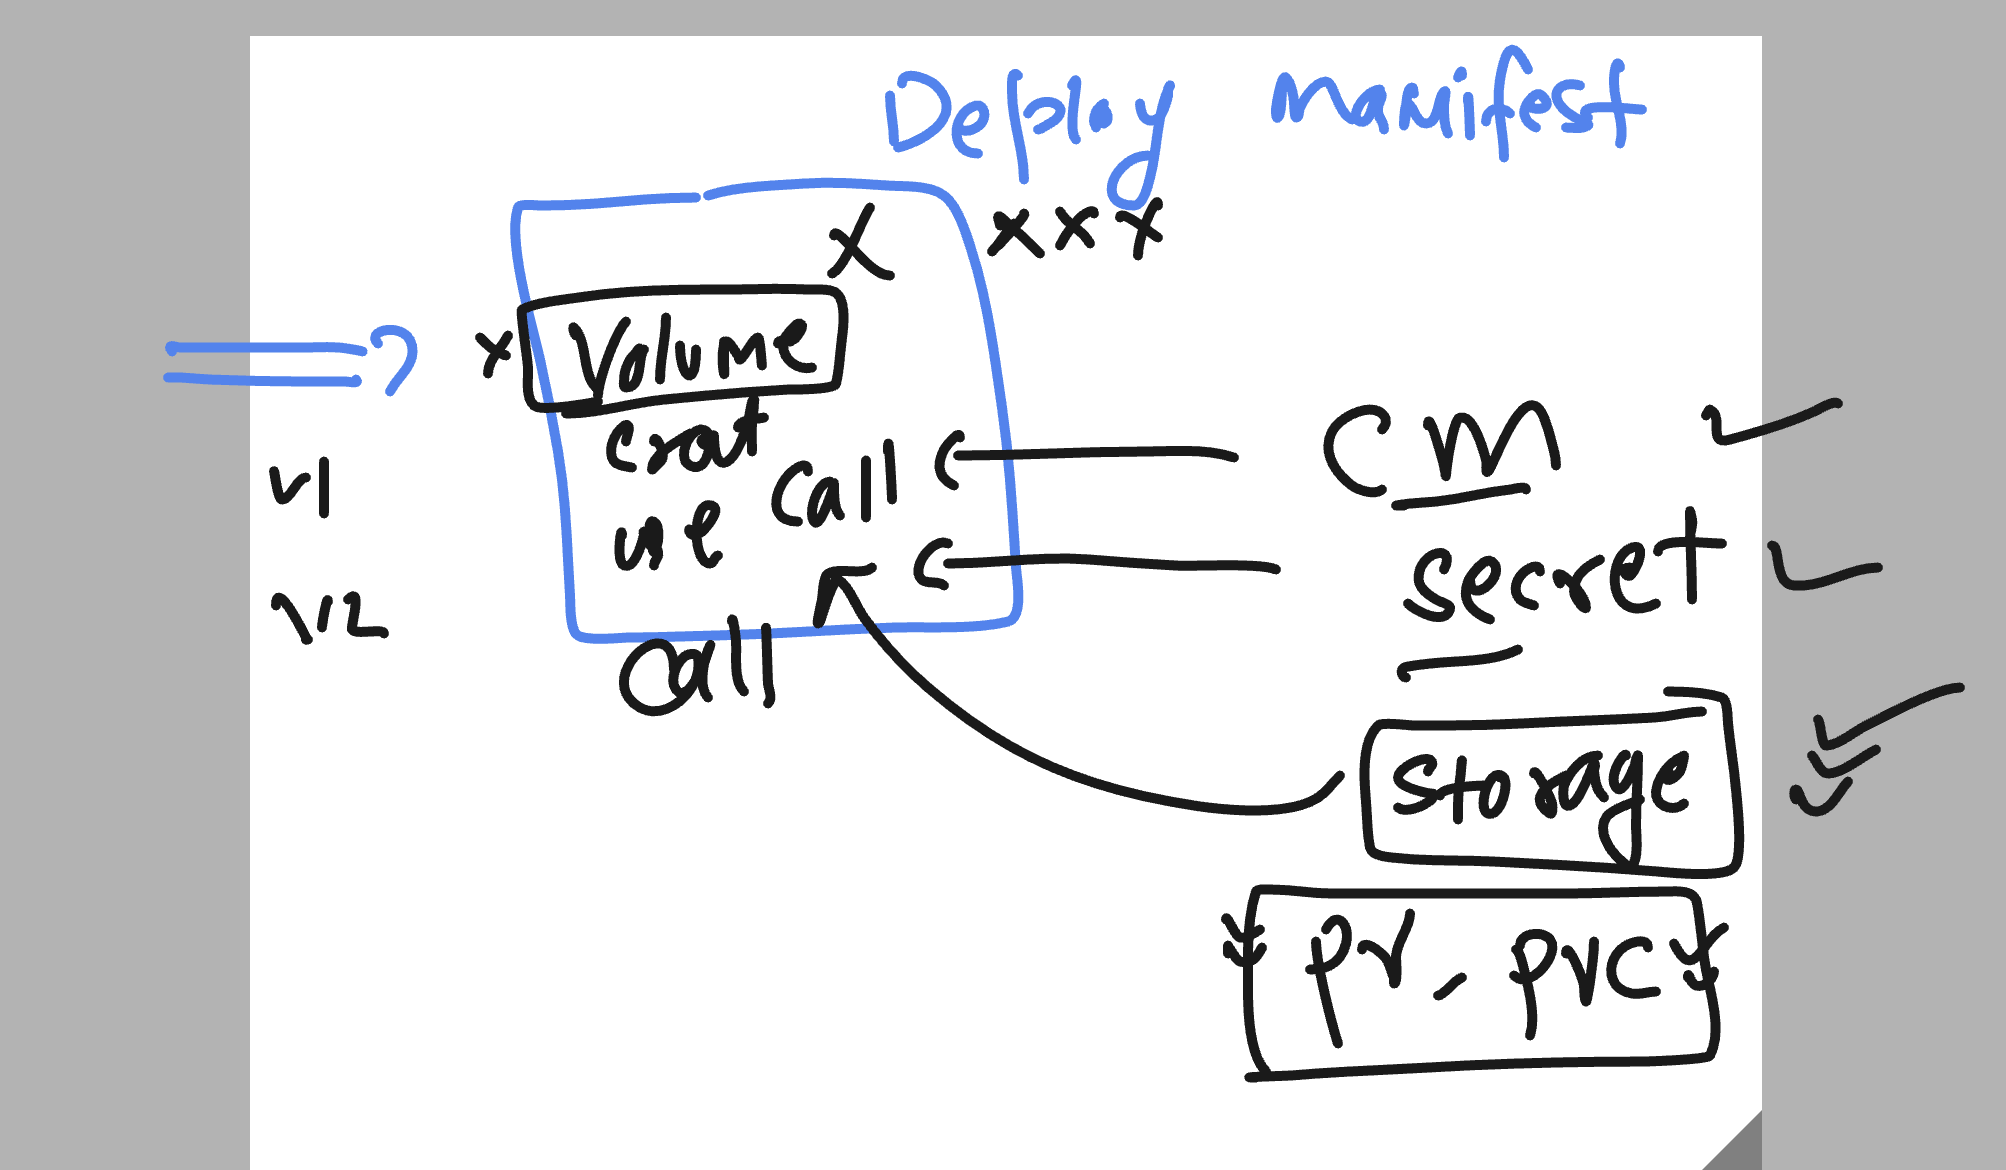 Deploy Manifest
x x x x
x Volume
?
crat
call
v1
use
v2
call
CM
secret
storage
pv - pvc